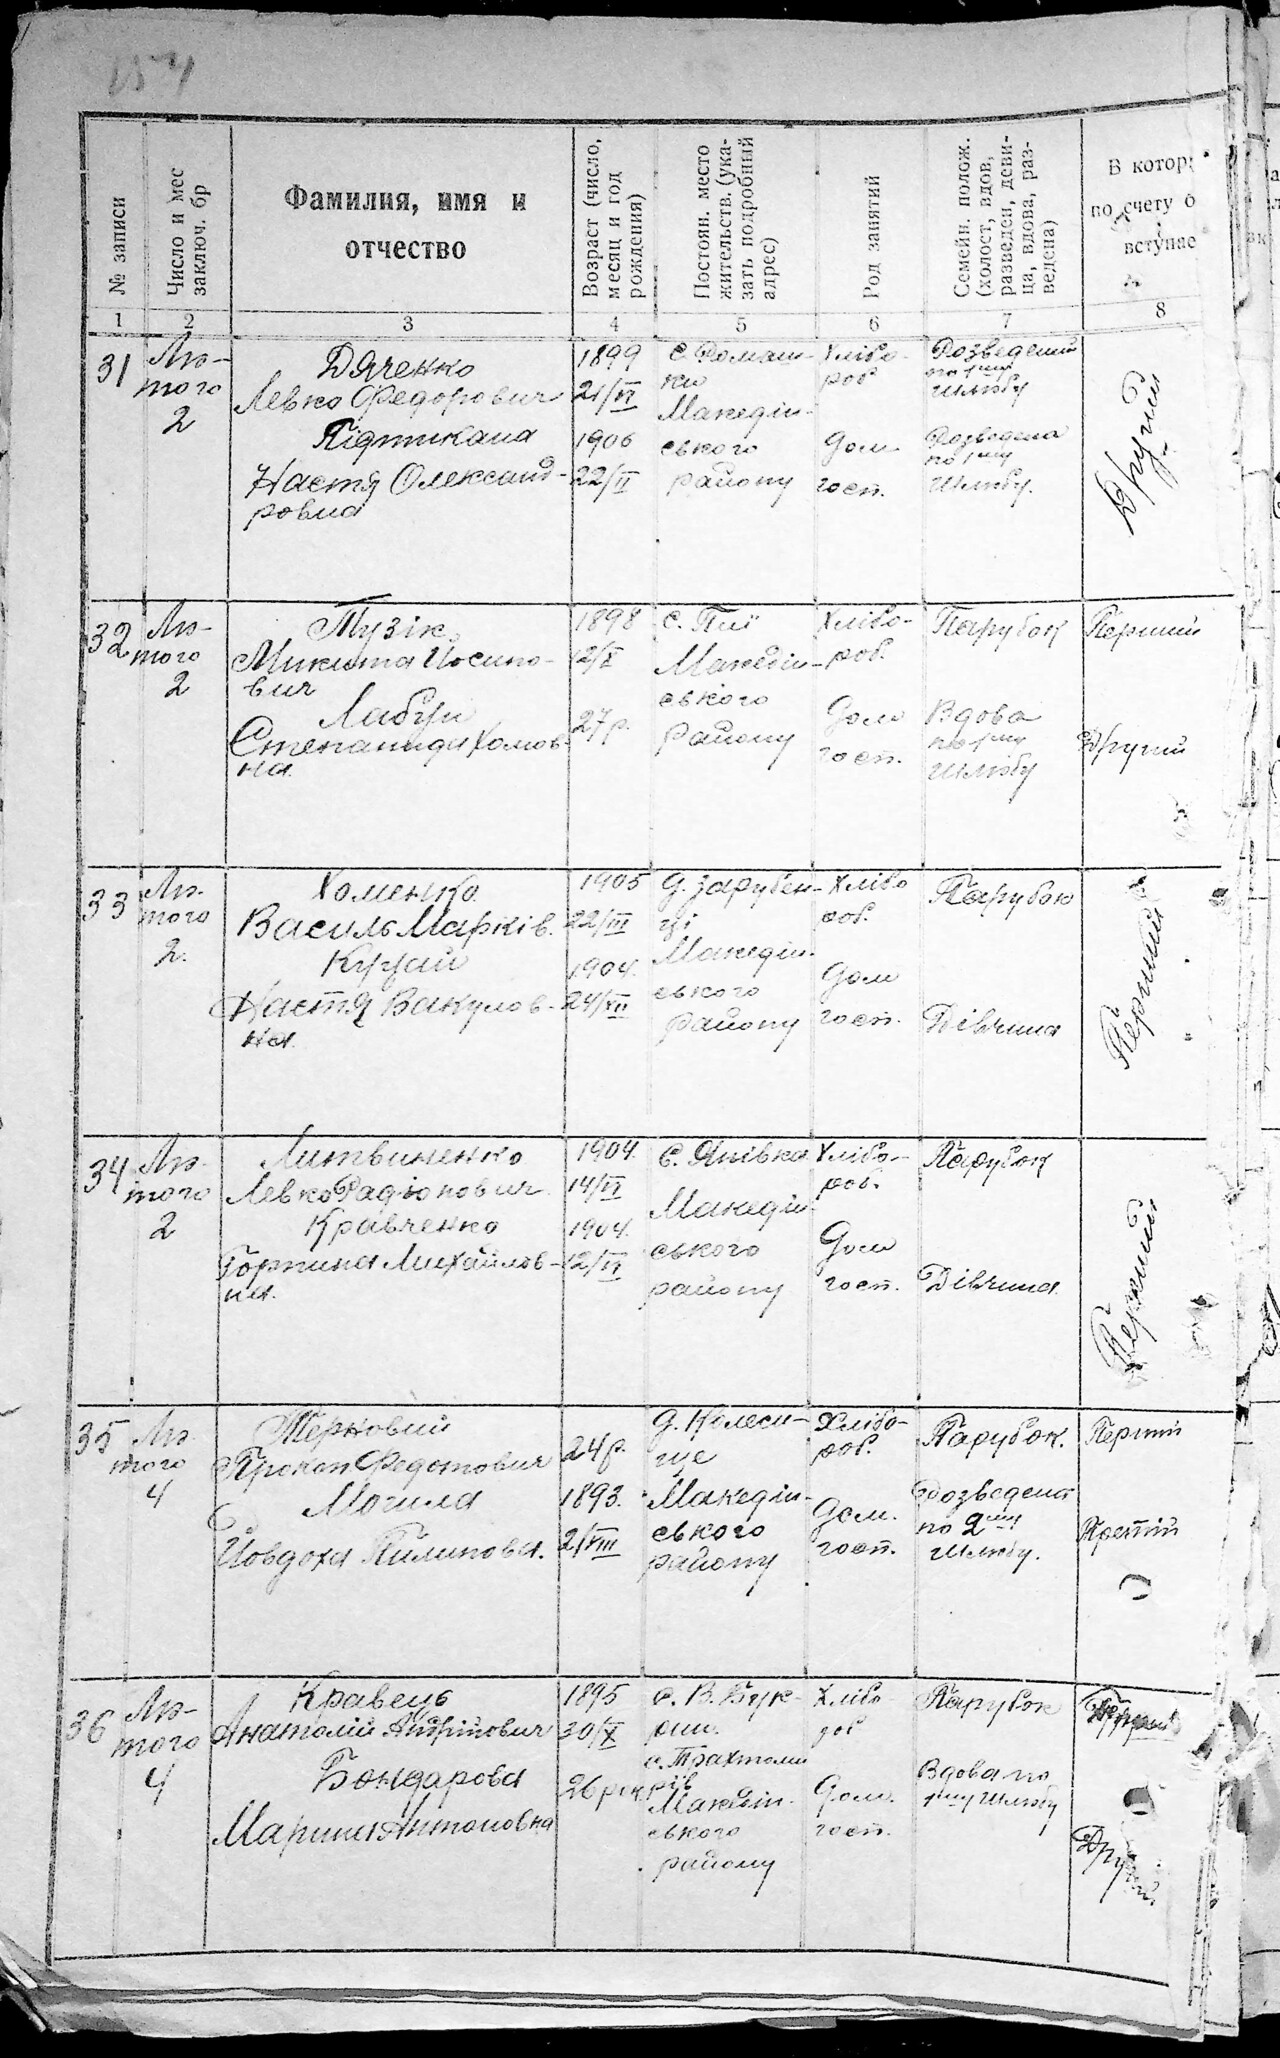 154
№ записи
Число и мес
заключ. бр
Фамилия, имя и
отчество
Возраст (число,
месяц и год
рождения)
Постоян. место
жительств. (ука-
зать подробный
адрес)
Род занятий
Семейн. полож.
(холост, вдов,
разведен, деви-
ца, вдова, раз-
ведена)
В котор
по счету б
вступае
1 2 3 4 5 6 7 8
31
Лю-
того
2
Дяченко
Левко Федорович
Підтикана
Настя Олександ-
ровна
1899
21/VI
1906
22/II
с. Ромаш-
ки
Македін-
ського
району
Хлібо-
роб
Дом
госп.
Розведений
по 1му
шлюбу
Розведена
по 1му
шлюбу.
Другий
32
Лю-
того
2
Музік
Микита Йосипо-
вич
Лабун
Степанида Хомов-
на.
1898
12/X
27 р.
с. Пії
Македін-
ського
району
Хлібо-
роб.
Дом
госп.
Парубок
Вдова
по 1му
шлюбу
Перший
Другий
33
Лю-
того
2.
Хоменко
Василь Марків.
Куцай
Настя Вакулов-
на.
1905
22/III
1904.
24/XII
д. Зарубен-
ці
Македін-
ського
району
Хлібо
роб.
Дом
госп.
Парубок
Дівчина
Перший
34
Лю-
того
2
Литвиненко
Левко Радіонович
Кравченко
Горпина Михайлов-
на.
1904.
14/II
1904.
12/VI
с. Янівка
Македін-
ського
району
Хлібо-
роб.
Дом
госп.
Парубок
Дівчина.
Перший
35
Лю-
того
4
Терновий
Прокоп Федотович
Могила
Йовдоха Пилипова.
24 р.
1893.
2/VIII
д. Колеси-
ще
Македін-
ського
району
Хлібо-
роб.
Дом.
госп.
Парубок.
Розведена
по 2му
шлюбу.
Перший
Третій
36
Лю-
того
4
Кравець
Анатолій Андрійович
Бондарова
Марина Антоновна
1895
30/X
26 рок.
с. В. Бук-
рин.
с. Трахтеми
рів
Македін-
ського
району
Хлібо
роб
Дом.
госп.
Парубок
Вдова по
1му шлюбу
Другий